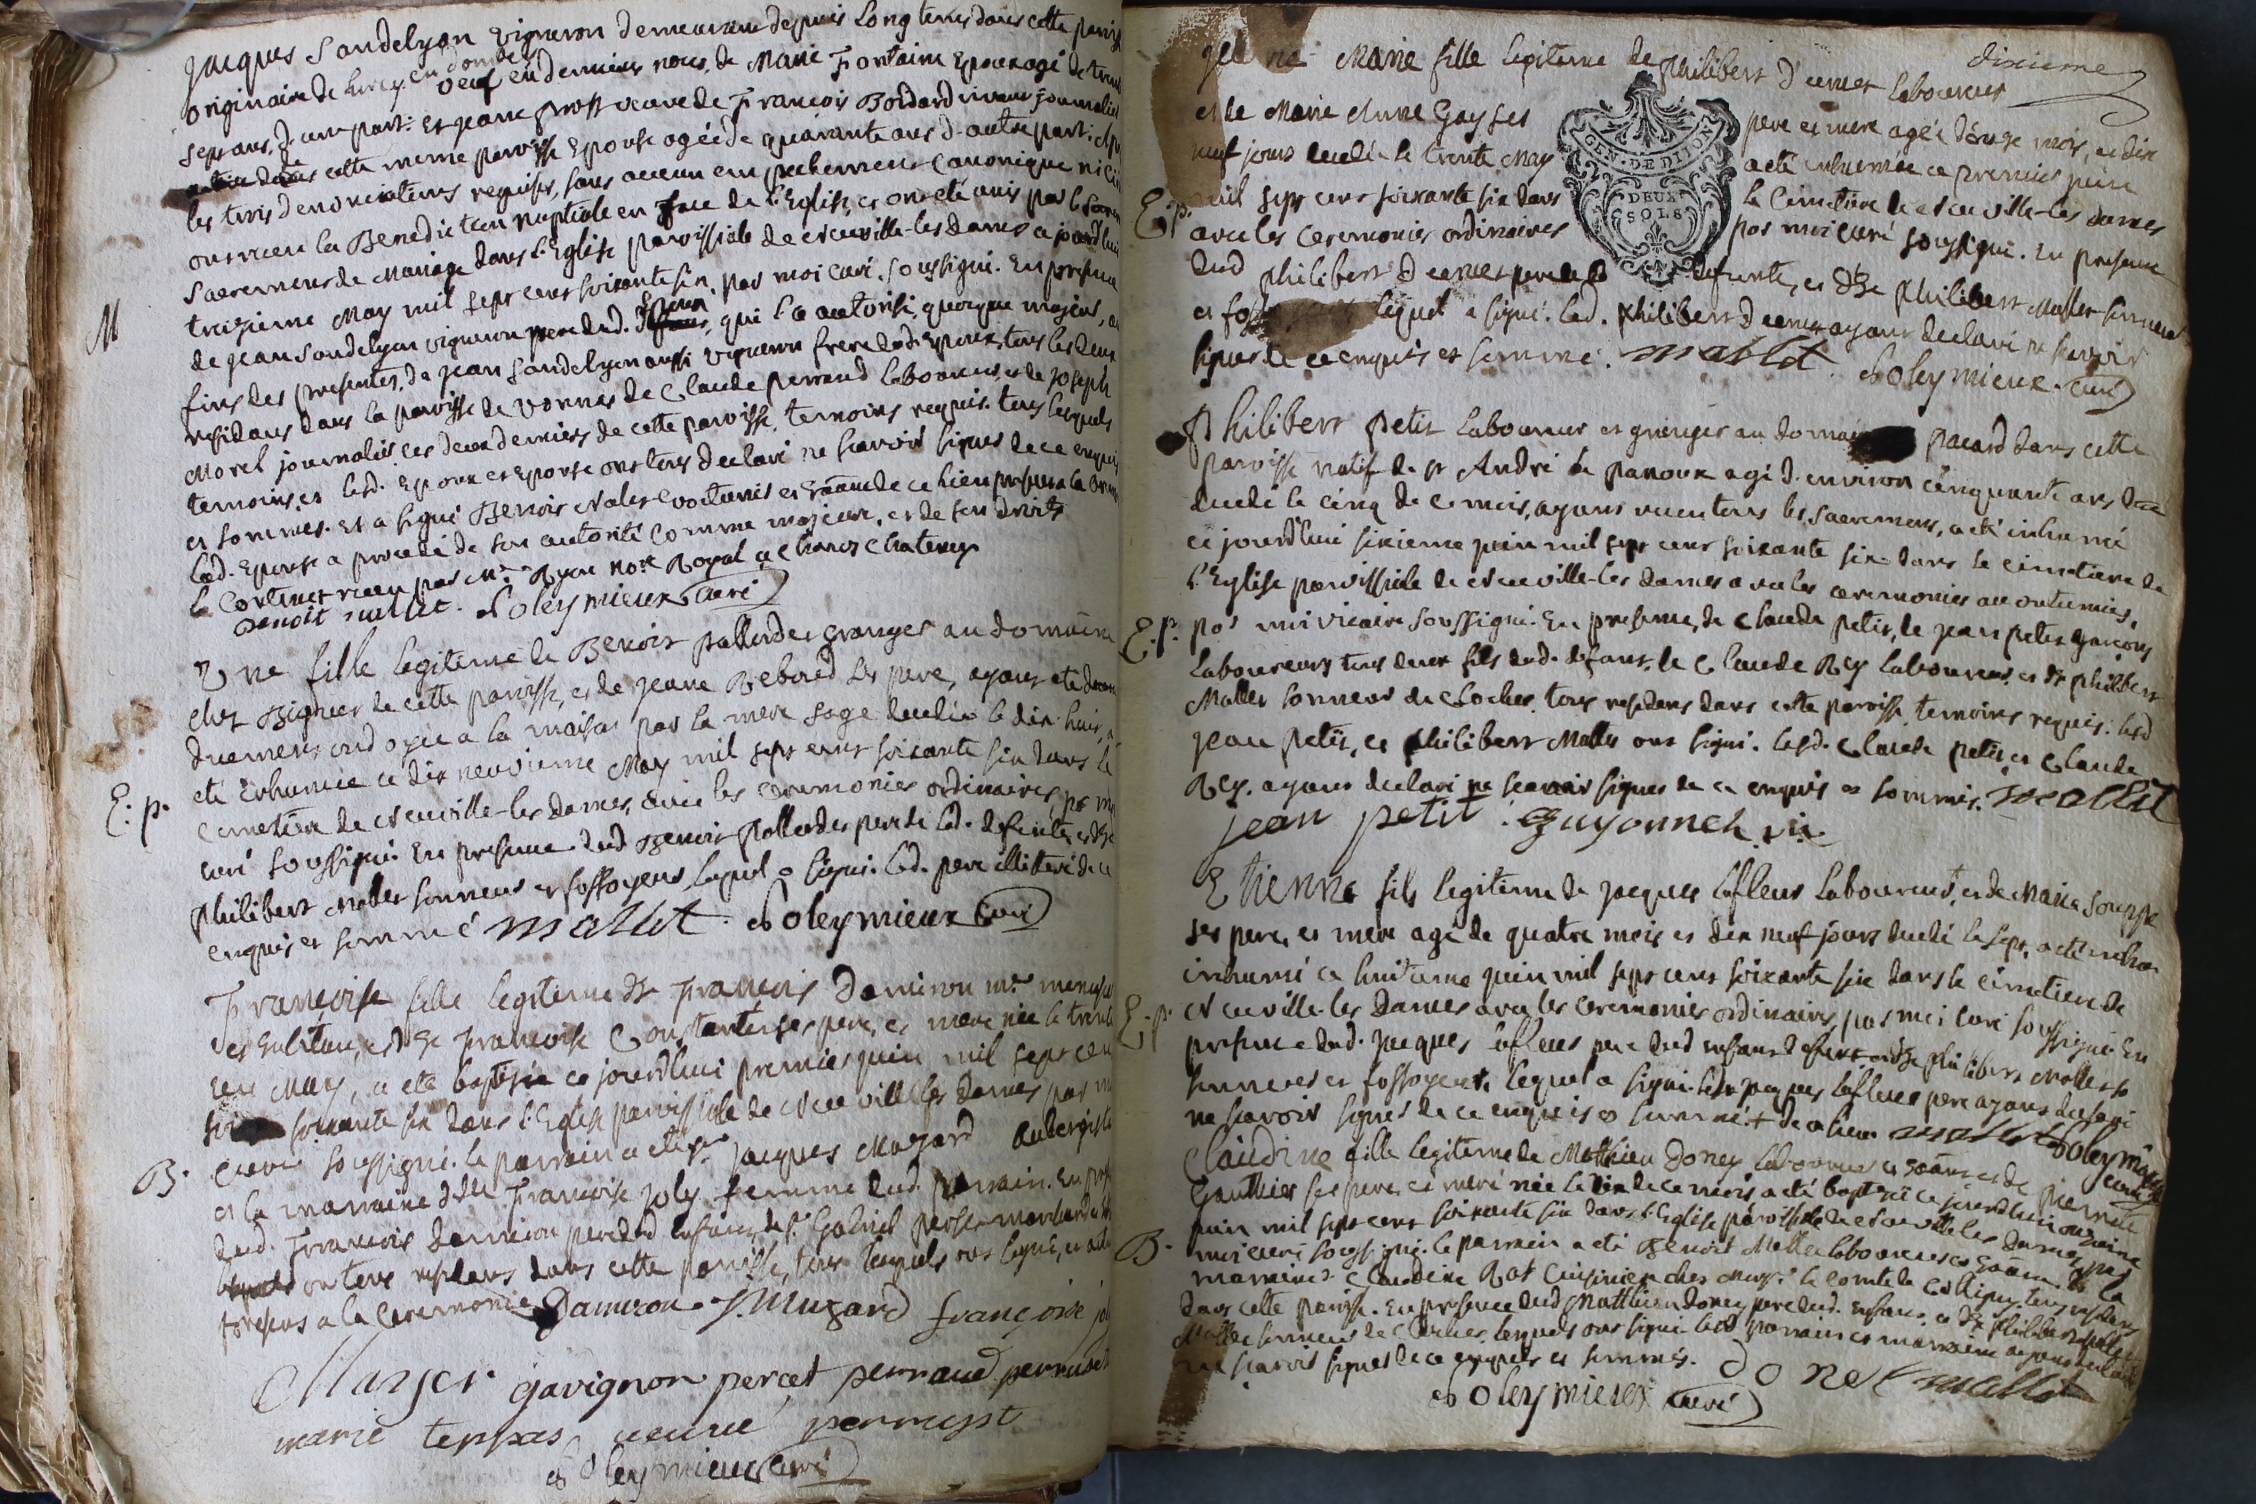 Jacques Sandelyon vigneron demeurant depuis long tems dans cette paroi
originaire de Lurcy en dombes veuf en dernieres noces de Marie Fontaine Epoux agé de trent
sept ans, d'une part: Et jeane prost veuve de François Boidard vivant journalier
dans cette meme paroisse Epouse agée de quarante ans d'autre part:
les trois denonciations requises, sans aucun empechement canonique ni civil
ont recu la Benediction nuptiale en face de l'Eglise, et ont été unis par le sacre
sacrement de Mariage dans l'Eglise paroissiale de Neuville-les-Dames ce jourd'hui
M
treizieme May mil sept cent soixante six, par moi curé soussigné. En presence
de jean Sandelyon vigneron pere dud. Epoux, qui l'a autorisé, quoique majeur, a
fins des presentes, de jean Sandelyon aussi vigneron frere dud. Epoux, tous les deux
residans dans la paroisse de vonnas de Claude perraud laboureur, et de joseph
Morel journalier ces deux derniers de cette paroisse, temoins requis. tous lesquels
temoins, et lesd. Epoux et Epouse ont tous declaré ne scavoir signer de ce enquis
et sommés. Et a signé Benoit Mallet
lad. Epouse a procedé de son autorité comme majeure, et de ses droits
le contrat recu par Me. Ryou nore Royal a
benoit mallet. Soleymieux curé
Une fille legitime de Benoit pallordet granger au domaine
chez Bigner de cette paroisse, et de jeane Reboud ses pere, ayant eté
duement ondoyée a la maison par la mere sage decedée le dix-huit, a
eté inhumée ce dix neuvieme May mil sept cent soixante six dans le
E. p.
cemetiere de Neuville-les-Dames, avec les ceremonies ordinaires, par moi
curé soussigné. En presence dud Benoit pallordet pere de lad. defunte, et de
Philibert Mallet sonneur et fossoyeur, lequel a signé. led. pere illiteré de ce
enquis et sommé mallet. Soleymieux curé
Françoise fille legitime de Sr François Damiron me. menuisier
et de Françoise Constantin ses pere, et mere née le trente
un May, a eté baptisée ce jourd'hui premier juin mil sept cen
soixante six dans l'Eglise paroissiale de Neuville les Dames par m
B.
curé soussigné. le parrain a eté sr. jacques Muzard Aubergiste
et la marraine dlle Françoise joly femme dud. parrain. En pres
dud. François Damiron pere dud. enfant, de sr. Gabriel
tous residens dans cette paroisse, tous lesquels ont signé, et
presens a la ceremonie Damiron J. Muzard françoise jo
gavignon percet perraud perrusset
marie terpas veuve perrusset
Soleymieux curé
dixieme
Marie fille legitime de Philibert Ducrest laboureur
et de Marie Anne Gay ses
GEN. DE DIJON
DEUX SOLS
pere et mere agée d'onze mois, et dix
neuf jours decedée le trente May
a eté inhumée ce premier juin
E. p.
mil sept cent soixante six dans
le cimetiere de Neuville-les Dames
avec les ceremonies ordinaires
par moi curé soussigné. En presence
dud philibert Ducrest pere de la defunte, et de Philibert Mallet sonneur
et fos lequel a signé. led. Philibert Ducrest ayant declaré ne scavoir
signer de ce enquis et sommé. mallet. Soleymieux curé
Philibert petit Laboureur et granger au domaine pacard dans cette
paroisse natif de st André le panoux agé d'environ cinquante ans
decedé le cinq de ce mois, ayant recu tous les sacremens, a eté inhumé
ce jourd'hui sixieme juin mil sept cent soixante six dans le cimetiere de
l'Eglise paroissiale de Neuville-les-Dames avec les ceremonies accoutumées,
E. p.
par moi vicaire soussigné. En presence, de Claude petit, de jean petit garçons
laboureurs tous deux fils dud. defunt, de Claude Rey laboureur, et de philibert
Mallet sonneur de cloches, tous residens dans cette paroisse, temoins requis: led
jean petit, et philibert Mallet ont signé. lesd. Claude petit, et Claude
Rey ayans declaré ne scavoir signer de ce enquis et sommés. mallet
jean petit. Guyonnet vic
Etienne fils legitime de jacques Lafleur Laboureur, et de Marie Soupe
ses pere, et mere agé de quatre mois et dix neuf jours decedé le sept, a eté
inhumé ce huitieme juin mil sept cent soixante six dans le cimetiere de
E. p.
Neuville-les Dames avec les ceremonies ordinaires, par moi curé soussigné. En
presence dud. jacques Lafleur pere dud enfant defunt, et de philibert Mallet
sonneur et fossoyeur, lequel a signé. led. jacques Lafleur pere ayant declaré
ne scavoir signer de ce enquis et sommé. mallet Soleymieux curé
Claudine fille legitime de Matthieu Doney laboureur et de pierrette
Gauthier ses pere, et mere née le dix de ce mois a eté baptisée ce jourd'hui onzieme
juin mil sept cent soixante six dans l'Eglise paroissiale de Neuville les Dames, par
B.
moi curé soussigné. le parrain a eté Benoit Mallet laboureur et la
marraine Claudine Rat cuisiniere chez Monsr. le comte de tous residens
dans cette paroisse. En presence dud Matthieu Doney pere dud. enfant, et de philibert
Mallet sonneur de cloches, lesquels ont signé. led. parrain et marraine ayans declaré
ne scavoir signer de ce enquis et sommés. donet mallet
Soleymieux curé